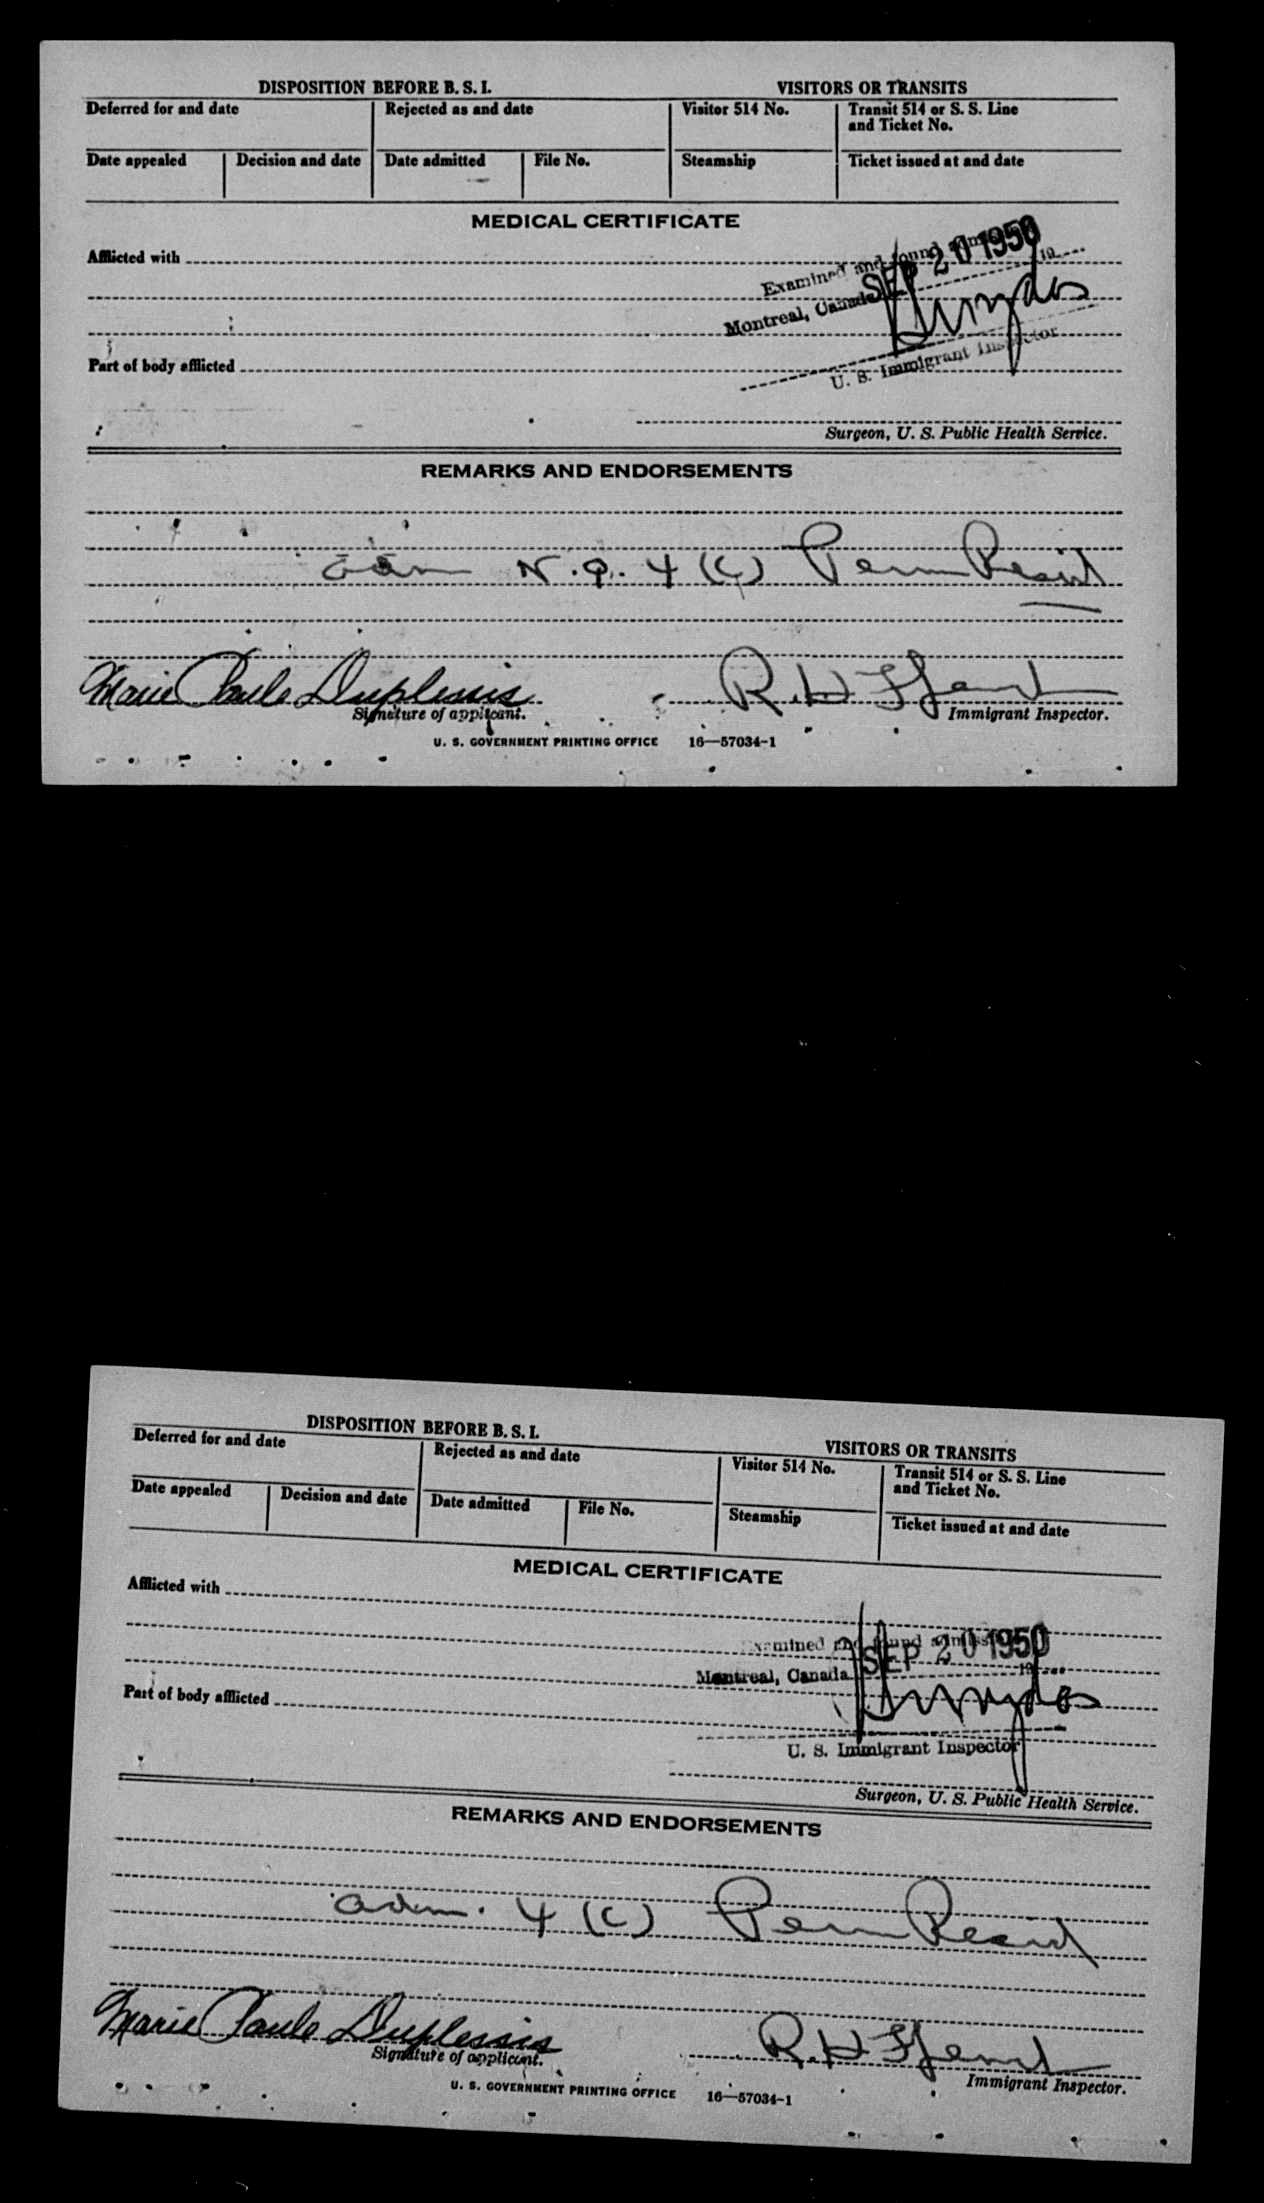 DISPOSITION BEFORE B. S. I. VISITORS OR TRANSITS
Deferred for and date Rejected as and date Visitor 514 No. Transit 514 or S. S. Line
and Ticket No.
Date appealed Decision and date Date admitted File No. Steamship Ticket issued at and date
MEDICAL CERTIFICATE
Afflicted with
Examined and found
SEP 20 1950
Montreal, Canada 19
U. S. Immigrant Inspector
Part of body afflicted
Surgeon, U. S. Public Health Service.
REMARKS AND ENDORSEMENTS
adm N.Q. 4 (C) Perm Resid
Marie Paule Duplessis R.H.
Signature of applicant. Immigrant Inspector.
U. S. GOVERNMENT PRINTING OFFICE 16—57034-1
DISPOSITION BEFORE B. S. I. VISITORS OR TRANSITS
Deferred for and date Rejected as and date Visitor 514 No. Transit 514 or S. S. Line
and Ticket No.
Date appealed Decision and date Date admitted File No. Steamship Ticket issued at and date
MEDICAL CERTIFICATE
Afflicted with
Examined and found
SEP 20 1950
Montreal, Canada 19
Part of body afflicted
U. S. Immigrant Inspector
Surgeon, U. S. Public Health Service.
REMARKS AND ENDORSEMENTS
adm. 4 (C) Perm Resid
Marie Paule Duplessis R.H.
Signature of applicant. Immigrant Inspector.
U. S. GOVERNMENT PRINTING OFFICE 16—57034-1